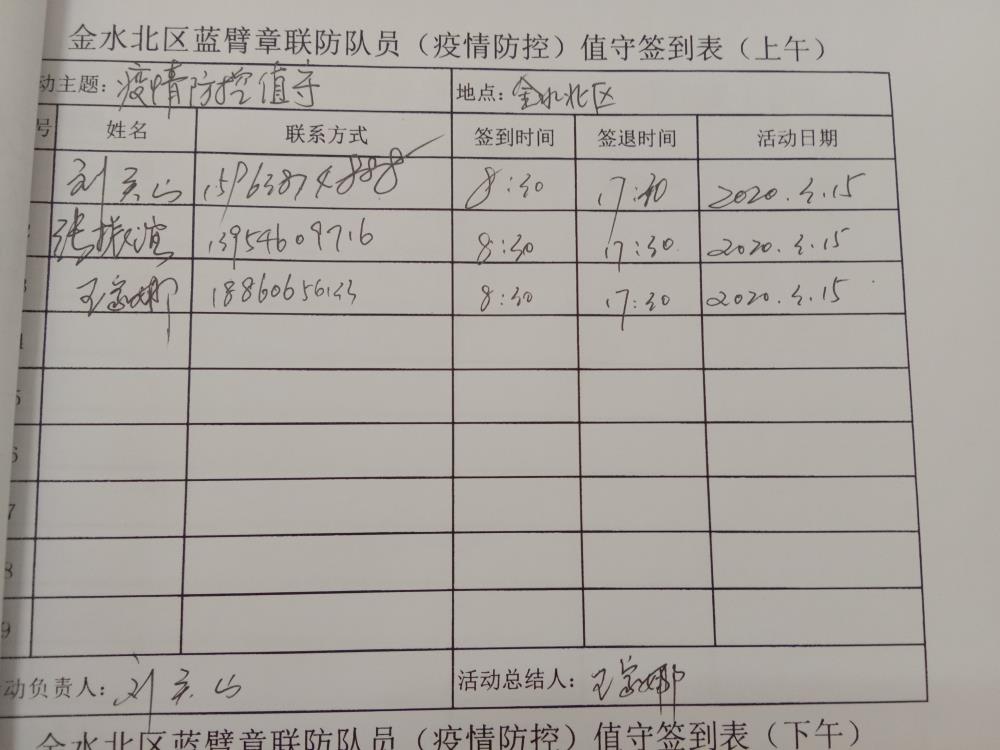 金水北区蓝臂章联防队员（疫情防控）值守签到表（上午）
动主题：疫情防控值守 地点：金水北区
号 姓名 联系方式 签到时间 签退时间 活动日期
刘 山 8:30 17:30 2020.3.15
张振谊 13954609716 8:30 17:30 2020.3.15
3 王家娜 8:30 17:30 2020.3.15
4
5
6
7
8
9
动负责人：刘 山 活动总结人：王家娜
金水北区蓝臂章联防队员（疫情防控）值守签到表（下午）